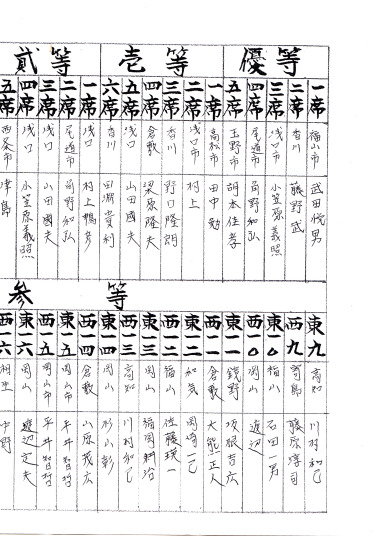 優等
一席 福山市 武田悦男
二席 香川 藤野武
三席 浅口市 小笠原義照
四席 尾道市 角野和弘
五席 玉野市 胡本佳孝
壱等
一席 高松市 田中勉
二席 浅口市 村上
三席 香川 野口隆朗
四席 倉敷 梁原隆夫
五席 浅口 山田國夫
六席 香川 田淵貴利
貳等
一席 浅口 村上鴨彦
二席 尾道市 角野和弘
三席 浅口 山田國夫
四席 浅口 小笠原義照
五席 西条市
参等
東九 高知 川村和己
西九 藤原淳司
東一〇 福山 石田一男
西一〇 岡山 渡辺
東一一 坂根吉広
西一一 倉敷 大熊正人
東一二 和気 岡崎一己
西一二 福山 佐藤瑛一
東一三 岡山 福岡耕治
西一三 高知 川村和己
東一四 岡山 杉山彰
西一四 倉敷 山原茂広
東一五 岡山市 平井智哲
西一五 岡山市 平井智哲
東一六 岡山 渡辺定夫
西一六 相生 中野